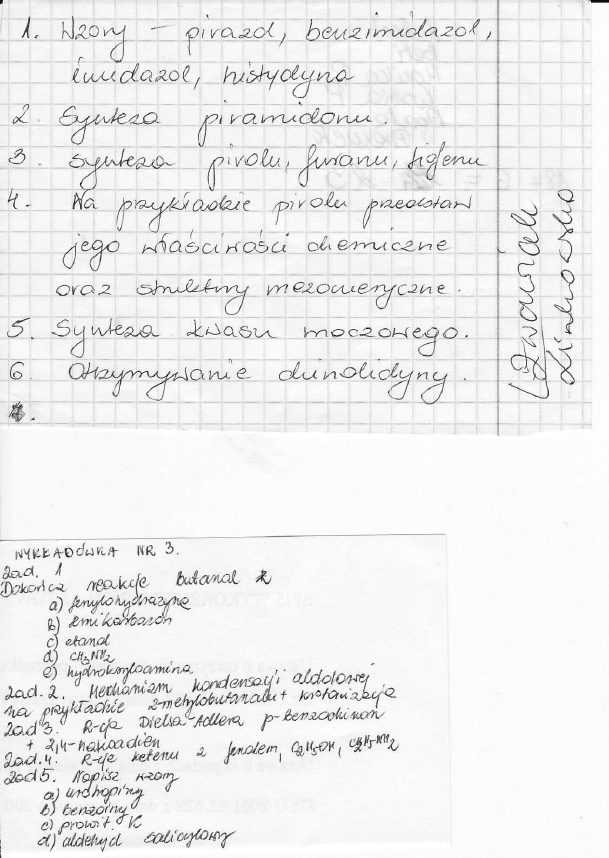 1. Wzory – pirazol, benzimidazol,
imidazol, histydyna
2. Synteza piramidonu.
3. Synteza pirolu, furanu, tiofenu
4. Na przykładzie pirolu przedstaw
jego właściwości chemiczne
oraz struktury mezomeryczne.
5. Synteza kwasu moczowego.
6. Otrzymywanie chinolidyny.
WYKŁADÓWKA NR 3.
Zad. 1
Dokończ reakcje butanal z
a) fenylohydrazyna
b) semikarbazon
c) etanol
d) CH3NH2
e) hydroksyloamina
Zad. 2. Mechanizm kondensacji aldolowej
na przykładzie 2-metylobutanalu + krotonizacja
Zad 3. R-cja Dielsa-Adlera p-benzochinon
+ 2,4-heksadien
Zad. 4. R-cje ketenu z fenolem, C2H5OH, C2H5-NH2
Zad 5. Napisz wzory
a) urotropiny
b) benzoiny
c) prowit. K
d) aldehyd salicylowy